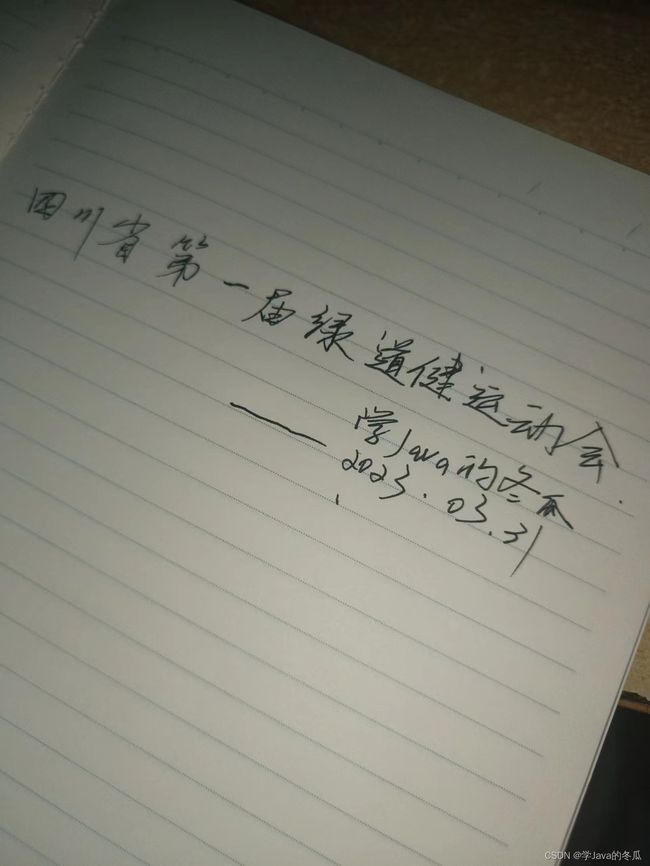 四川省第一届绿道健运动会.
——学Java的冬瓜
2023.03.31
CSDN @学Java的冬瓜